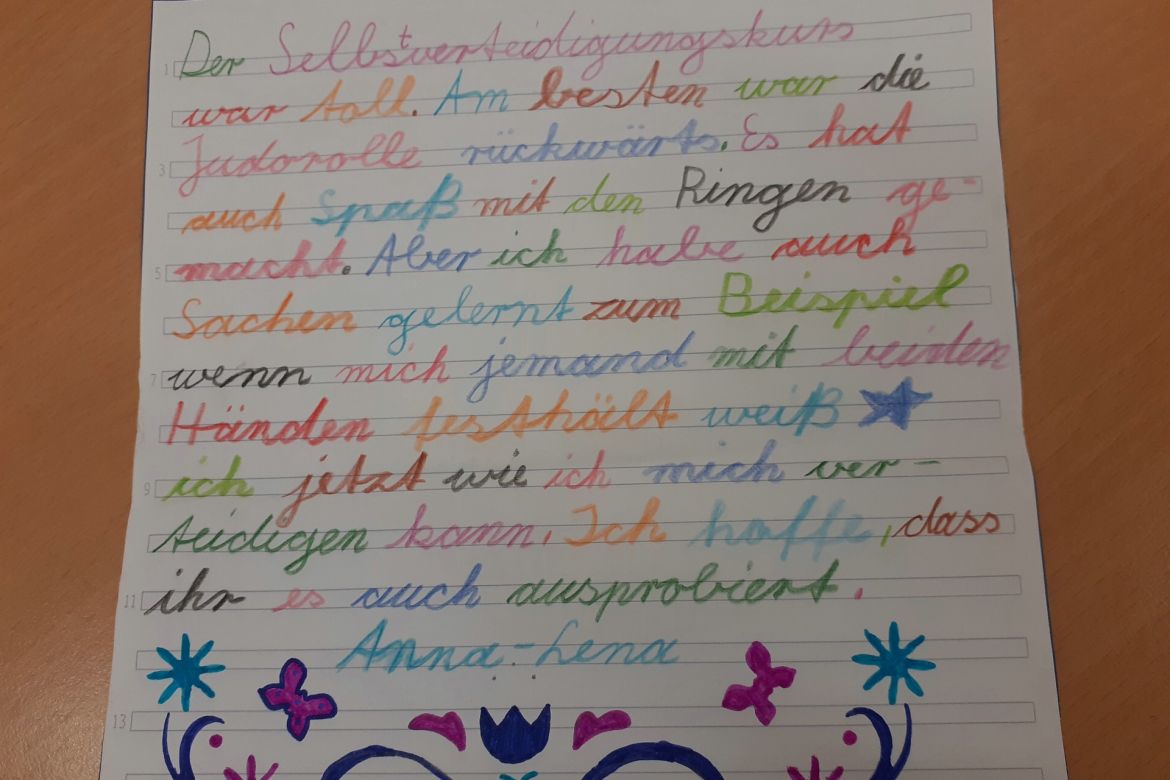 Der Selbstverteidigungskurs
war toll. Am besten war die
Judorolle rückwärts. Es hat
auch Spaß mit den Ringen ge-
macht. Aber ich habe auch
Sachen gelernt zum Beispiel
wenn mich jemand mit beiden
Händen festhält weiß
ich jetzt wie ich mich ver-
teidigen kann. Ich hoffe, dass
ihr es auch ausprobiert.
Anna-Lena